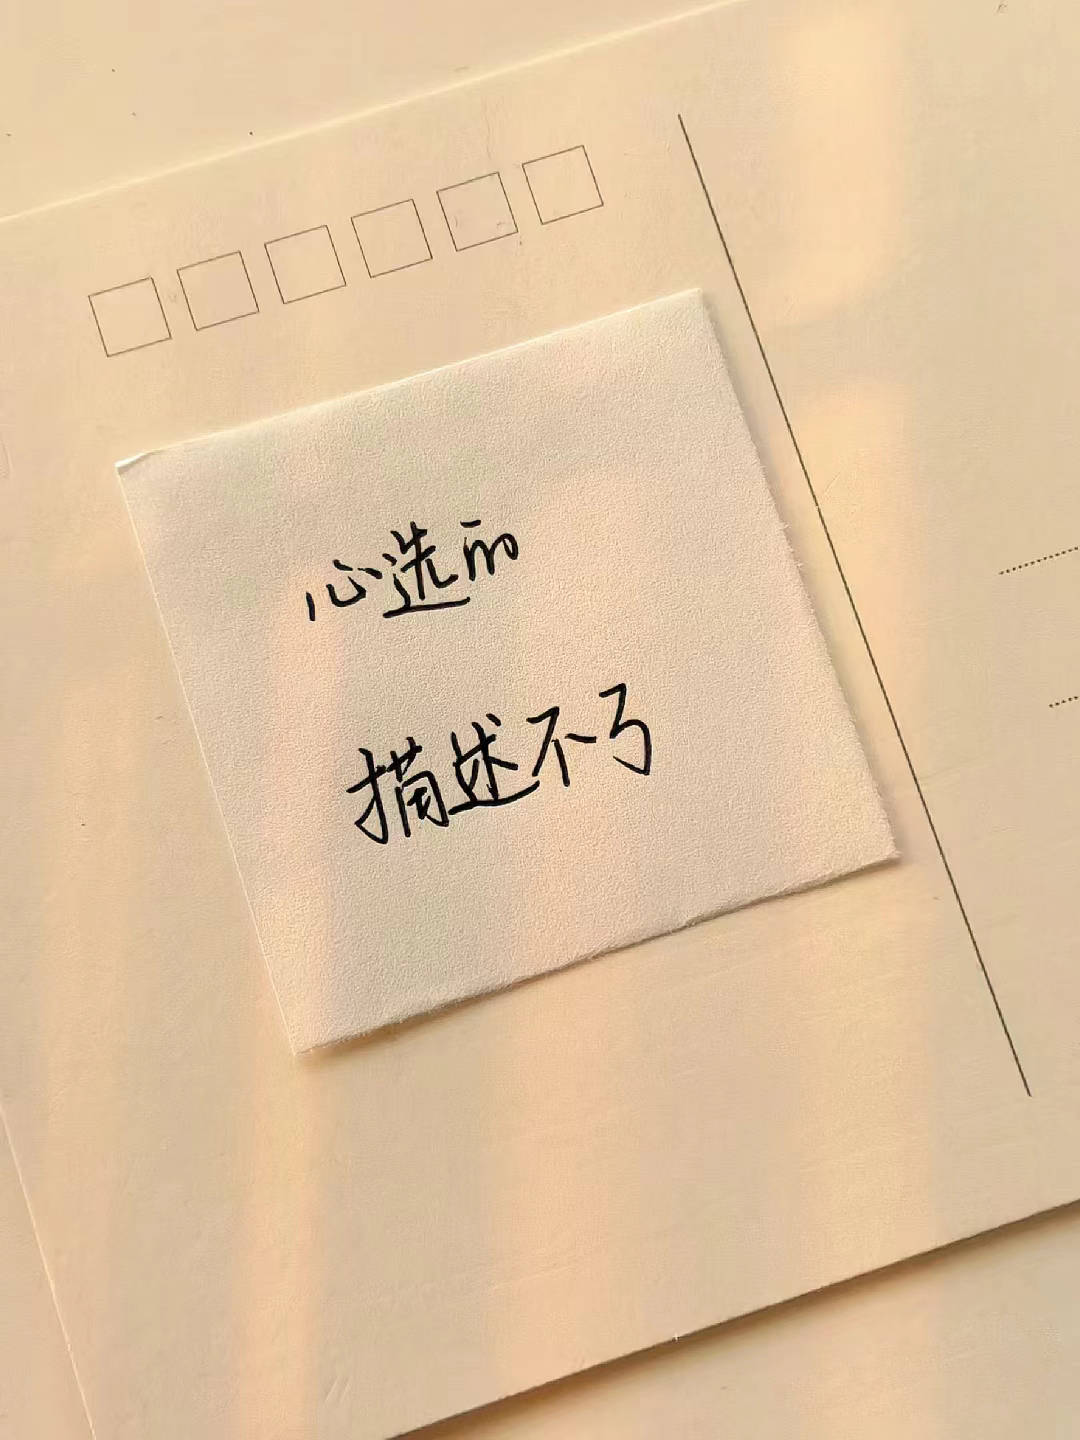 心选的
描述不了